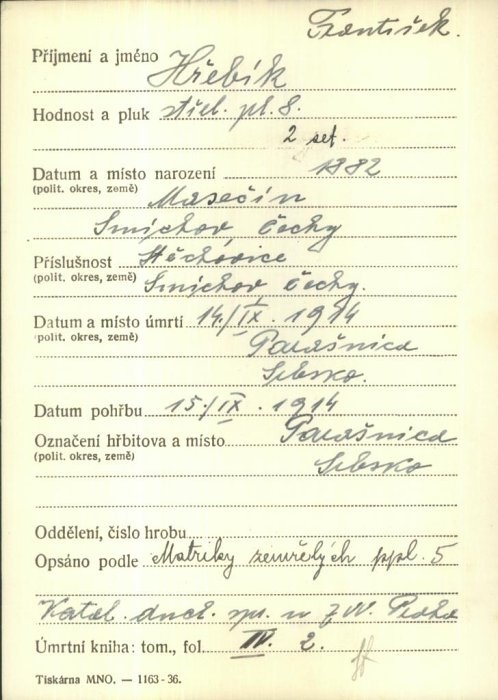 František.
Příjmení a jméno Hřebík
Hodnost a pluk střel. pl. 8.
2 set.
Datum a místo narození 1882
(polit. okres, země) Masečín
Smíchov Čechy
Příslušnost Štěchovice
(polit. okres, země) Smíchov Čechy.
Datum a místo úmrtí 14./IX. 1914
(polit. okres, země) Parašnica
Srbsko.
Datum pohřbu 15./IX. 1914
Označení hřbitova a místo Parašnica
(polit. okres, země) Srbsko
Oddělení, číslo hrobu
Opsáno podle Matriky zemřelých ppl. 5
Katol. duch. spr. u Praha
Úmrtní kniha: tom., fol. IV. 2.
Tiskárna MNO. — 1163-36.